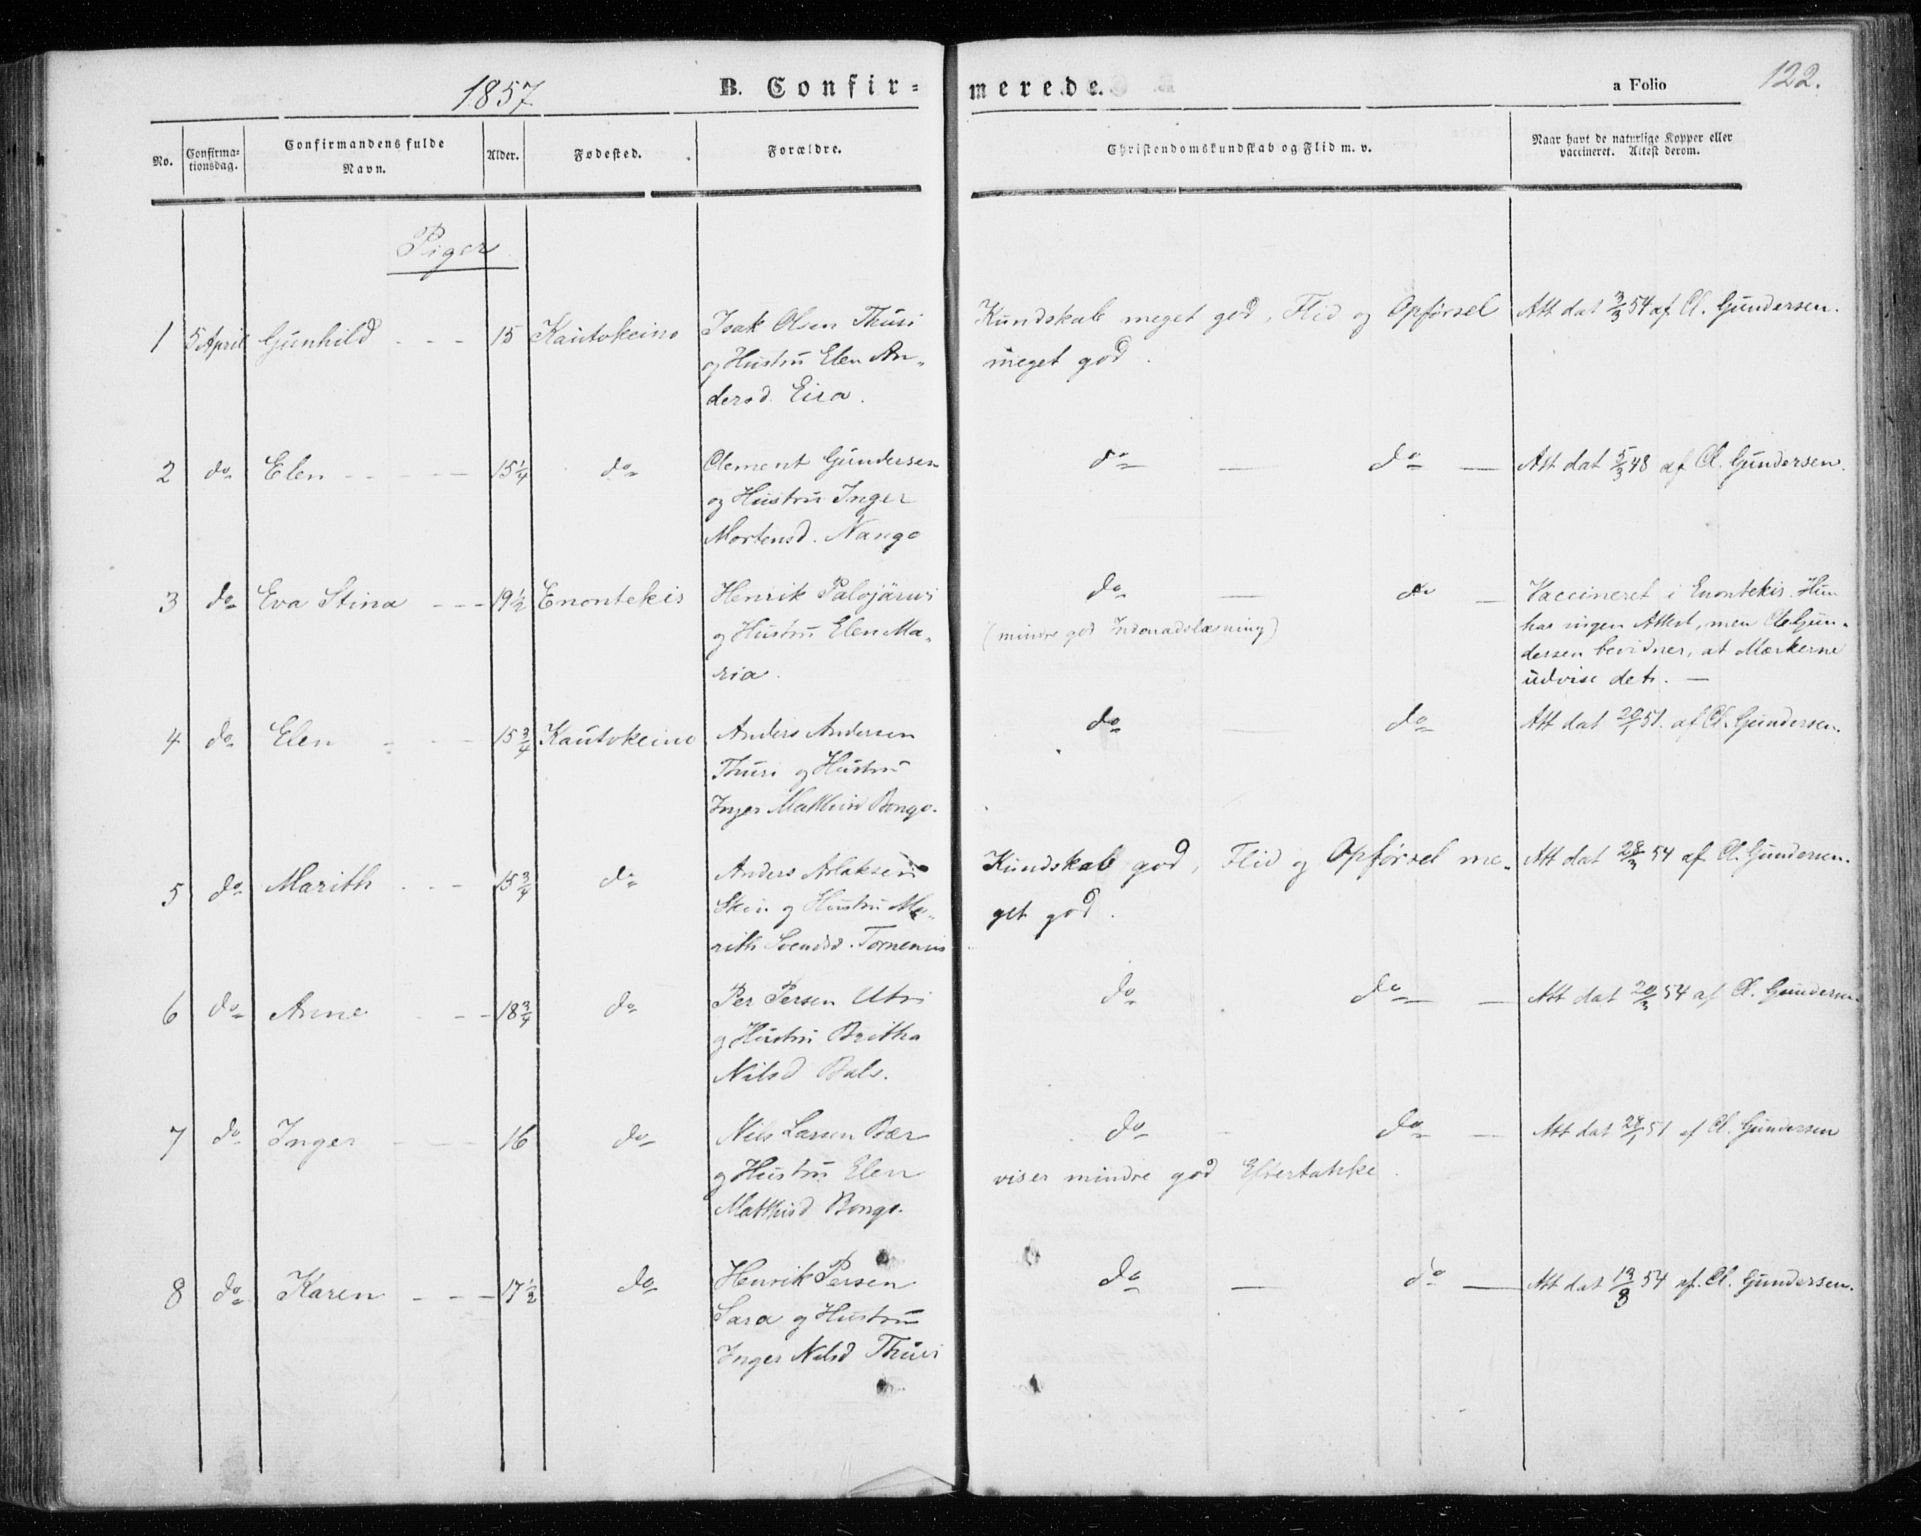 1857
B. Confir-
merede.
a Folio 122.
No.
Confirma-
tionsdag.
Confirmandens fulde
Navn.
Alder.
Fødested.
Forældre.
Christendomskundskab og Flid m. v.
Naar havt de naturlige Kopper eller
vaccineret. Attest derom.
Piger
1 5 April Gunhild - - - 15 Kautokeino Isak Olsen Thuri
og Hustru Elen An-
dersd. Eira.
Kundskab meget god, Flid og Opførsel
meget god.
Att dat 3/3 54 af Cl. Gundersen.
2 do Elen - - - 15 1/4 do Clement Gundersen
og Hustru Inger
Mortensd. Nango
do — do — Att dat 5/3 48 af Cl. Gundersen.
3 do Eva Stina - - - 19 1/2 Enontekis Henrik Palojärvi
og Hustru Elen Ma-
ria.
do — do —
(mindre god Indenadslæsning)
Vaccineret i Enontekis. Hun
har ingen Attest, men Cl. Gun-
dersen bevidner, at Mærkerne
udvise det. —
4 do Elen - - - 15 3/4 Kautokeino Anders Andersen
Thuri og Hustru
Inger Mathisd Bongo.
do — do Att dat 20/1 51. af Cl. Gundersen.
5 do Marith - - - 15 3/4 do Anders Aslaksen
og Hustru Ma-
rith Svendsd.
Kundskab god, Flid og Opførsel me-
get god.
Att dat 28/3 54 af Cl. Gundersen.
6 do Anne - - - 18 3/4 do Per Persen Utsi
og Hustru Britha
Nilsd Bals.
do do — Att dat 20/3 54 af Cl. Gundersen
7 do Inger - - - 16 do Nils Larsen Bær
og Hustru Elen
Matthisd Bongo.
do - do —
viser mindre god Eftertanke.
Att dat 28/1 51 af Cl. Gundersen
8 do Karen - - - 17 1/2 do Henrik Persen
Sara og Hustru
Inger Nilsd Thuri
do — do — Att dat 19/8 54 af. Cl. Gundersen.